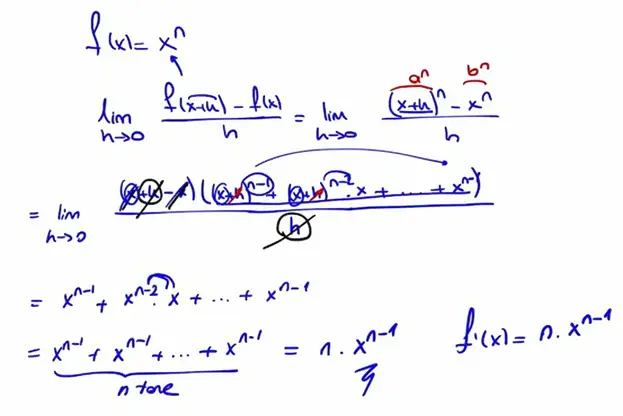 f(x) = xⁿ
lim h→0 (f(x+h) - f(x))/h = lim h→0 ((x+h)ⁿ - xⁿ)/h
aⁿ bⁿ
= lim h→0 ((x+h-x)((x+h)ⁿ⁻¹ + (x+h)ⁿ⁻²·x + ... + xⁿ⁻¹))/h
= xⁿ⁻¹ + xⁿ⁻²·x + ... + xⁿ⁻¹
= xⁿ⁻¹ + xⁿ⁻¹ + ... + xⁿ⁻¹ = n·xⁿ⁻¹
n tane
f'(x) = n·xⁿ⁻¹